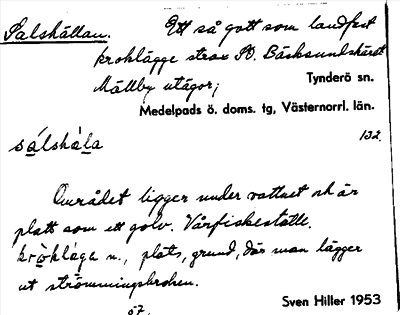 Salshällan. Ett så gott som landfast
kroklägge strax SO. Bäcksundskäret
Mällby utägor;
Tynderö sn.
Medelpads ö. doms. tg, Västernorrl. län.
132.
sálshàla
Området ligger under vattnet och är
platt som ett golv. Vårfiskeställe.
kròklága n., plats, grund, där man lägger
ut strömmingskroken.
Sven Hiller 1953
57.